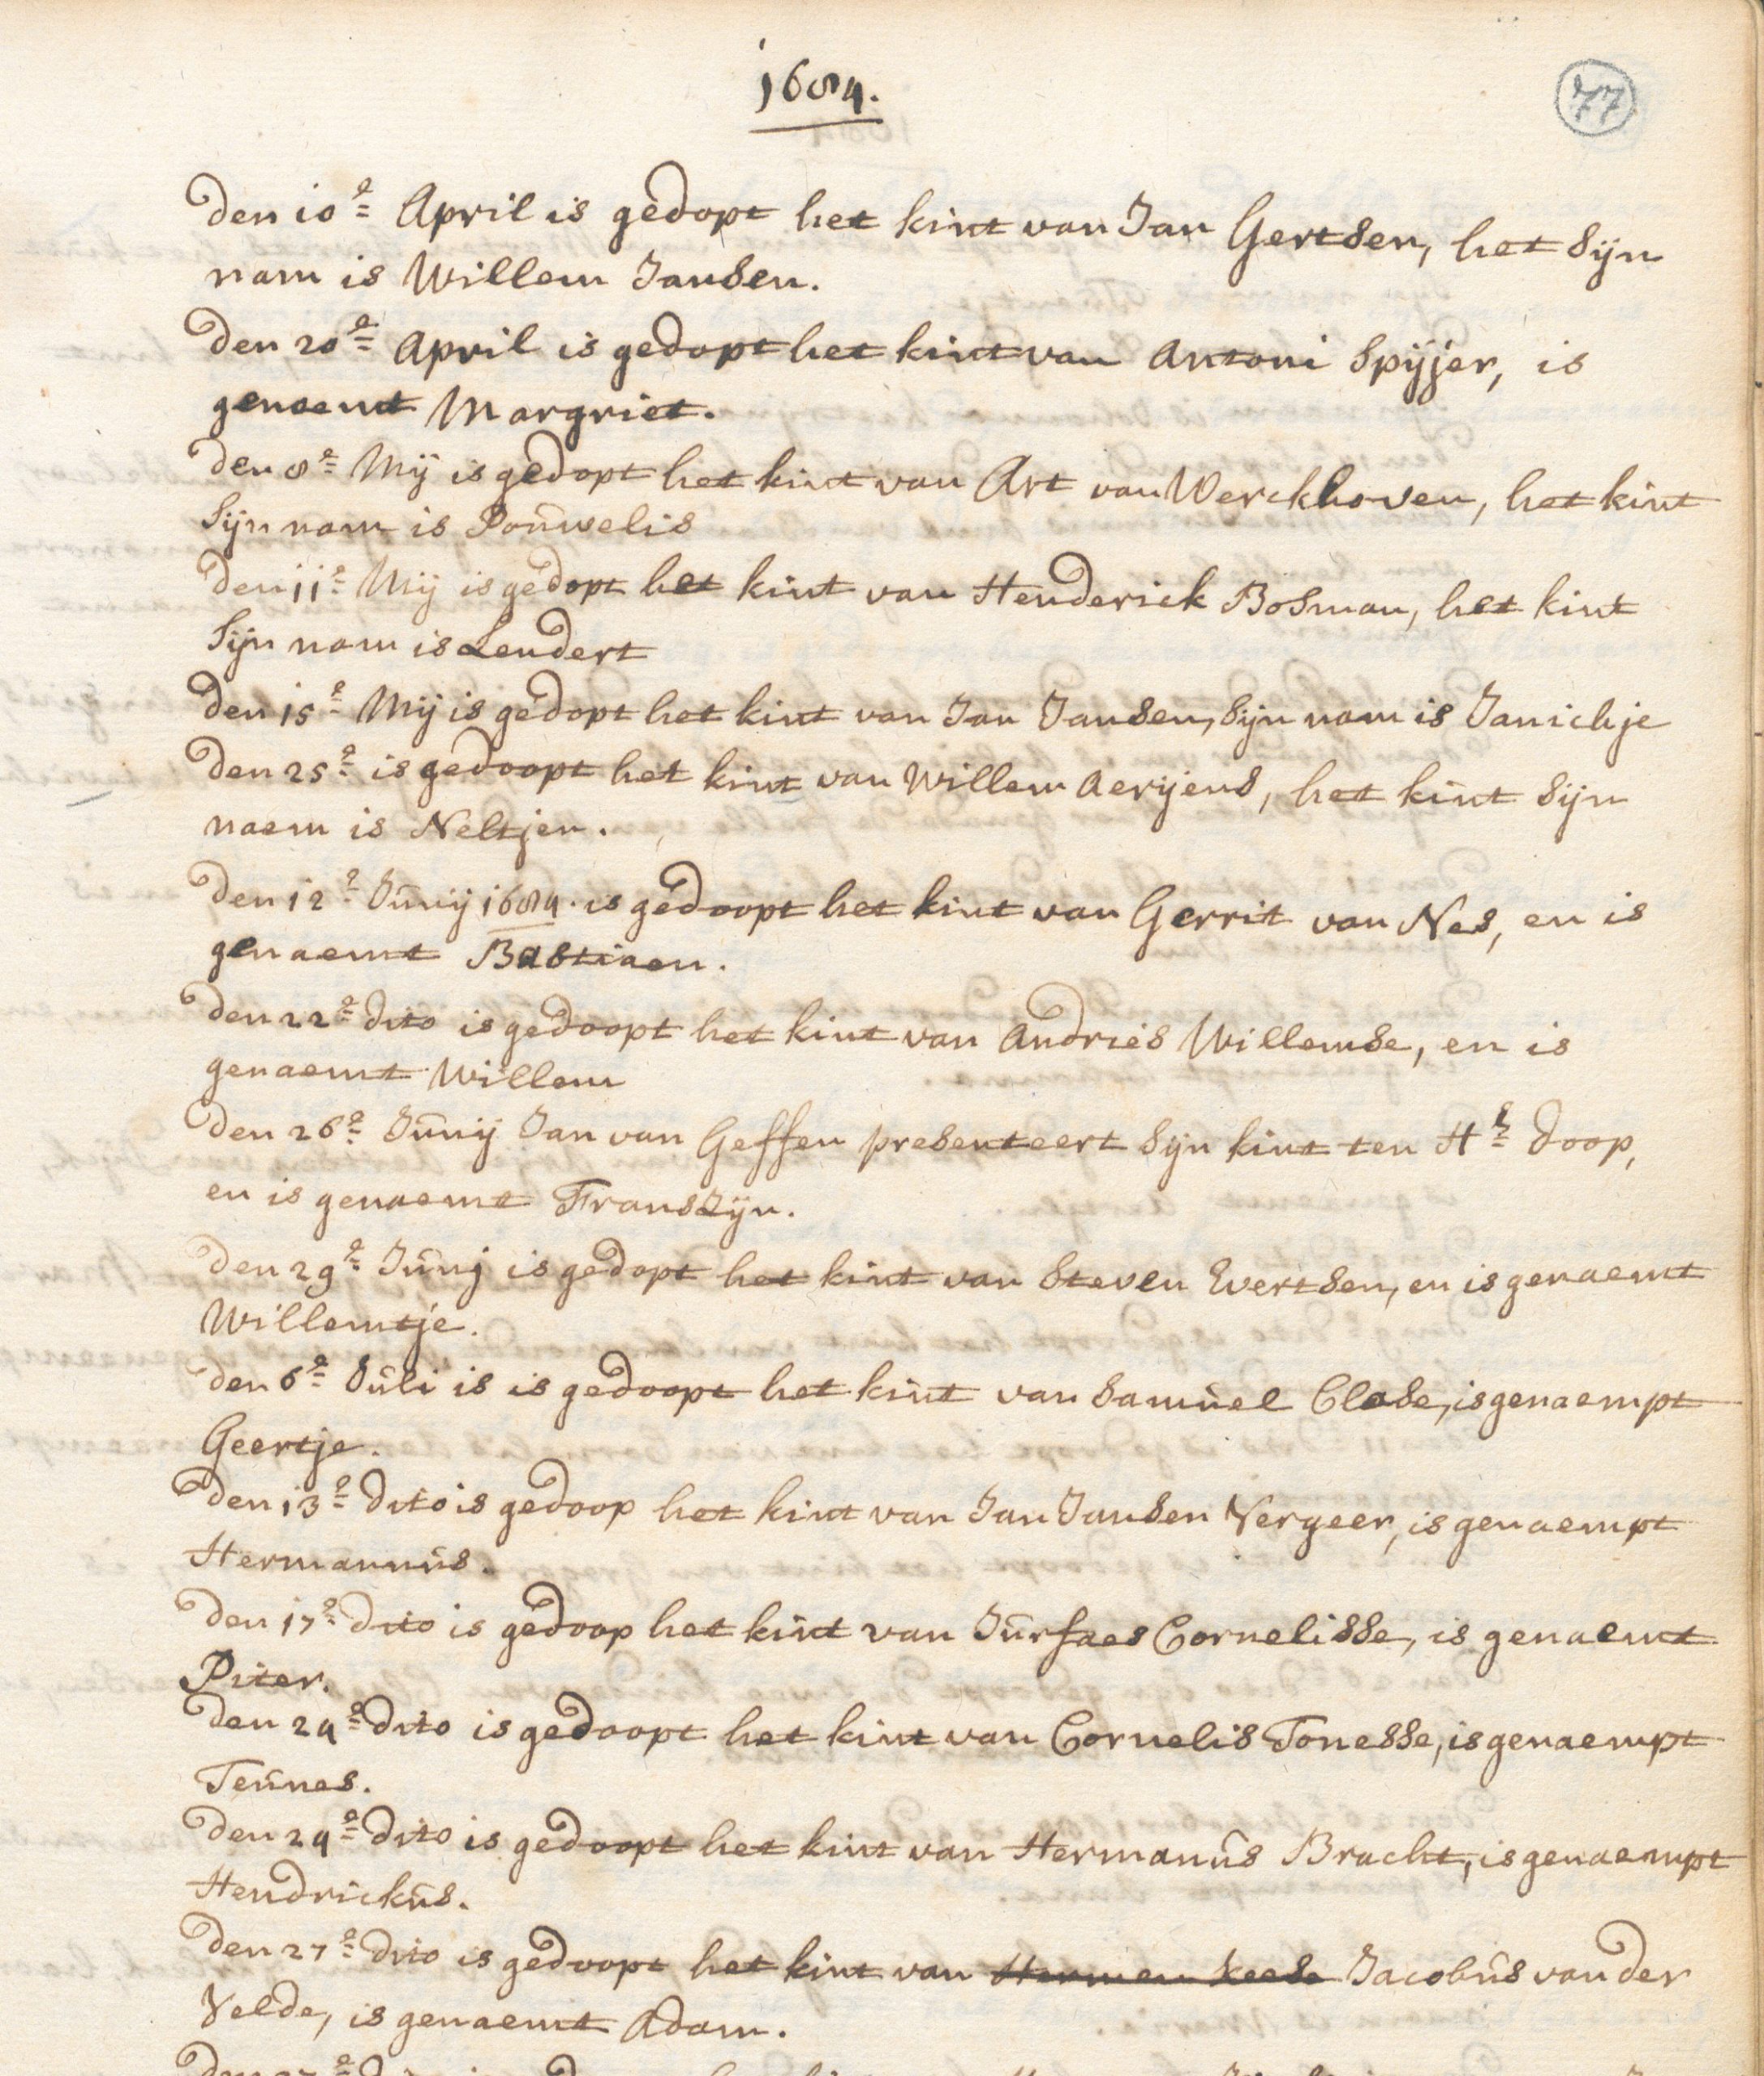 1684.
77
Den 10e April is gedopt het kint van Jan Gertsen, het sijn
nam is Willem Jansen.
Den 20e April is gedopt het kint van Antoni Spÿjer, is
genaemt Margriet.
Den 8e Mij is gedopt het kint van Art van Werckhoven, het kint
sijn nam is Pouwelis
Den 11e Mij is gedopt het kint van Henderick Bosman, het kint
sijn nam is Lendert
Den 15e Mij is gedopt het kint van Jan Jansen, sijn nam is Janichje
Den 25e is gedoopt het kint van Willem Aerijens, het kint sijn
naem is Neltjen.
Den 12e Junij 1684. is gedoopt het kint van Gerrit van Nes, en is
genaemt Bastiaen.
Den 22e dito is gedoopt het kint van Andries Willemse, en is
genaemt Willem
Den 26e Junij Jan van Geffen presenteert sijn kint ten H. doop,
en is genaemt Franszijn.
Den 29e Junij is gedopt het kint van Steven Evertsen, en is genaemt
Willemtje.
Den 6e Juli is is gedoopt het kint van Samuel Clase, is genaempt
Geertje.
Den 13e dito is gedoop het kint van Jan Jansen Vergeer, is genaempt
Hermannus.
Den 17e dito is gedoop het kint van Jurfaes Cornelisse, is genaemt
Piter.
Den 24e dito is gedoopt het kint van Cornelis Tonesse, is genaempt
Teunes.
Den 24e dito is gedoopt het kint van Hermanus Bracht, is genaempt
Hendrickus.
Den 27e dito is gedoopt het kint van Hermen Keese Jacobus van der
Velde, is genaemt Adam.